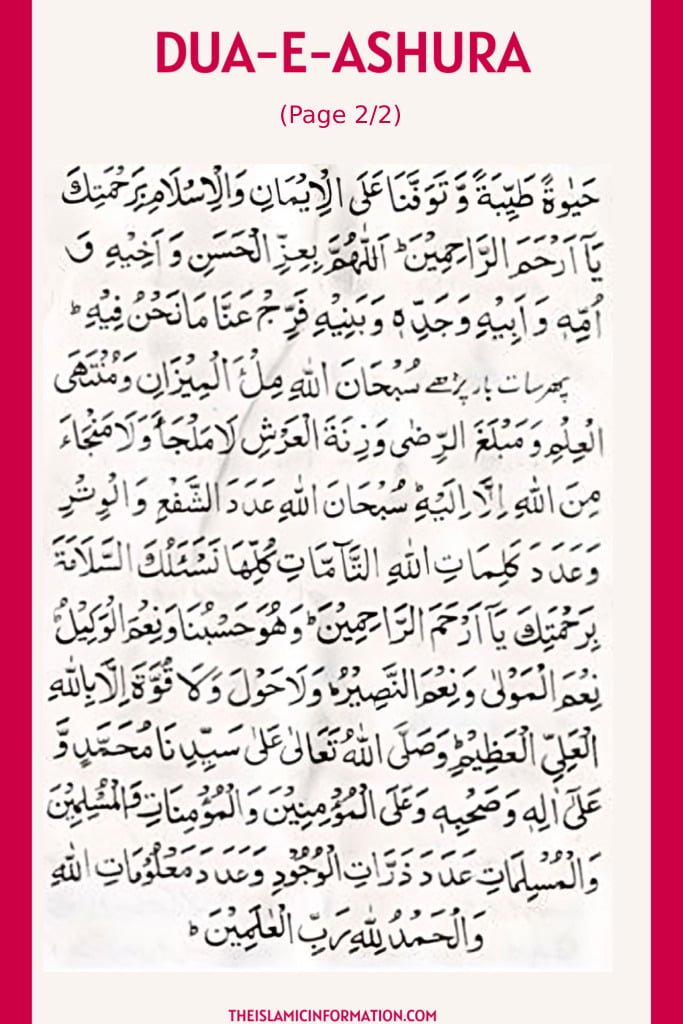 DUA-E-ASHURA
(Page 2/2)
حَيٰوةً طَيِّبَةً وَّ تَوَفَّنَا عَلَى الْاِيْمَانِ وَالْاِسْلَامِ بِرَحْمَتِكَ
يَآ اَرْحَمَ الرَّاحِمِيْنَ ؕ اَللّٰهُمَّ بِعِزِّ الْحَسَنِ وَ اَخِيْهِ وَ
اُمِّهٖ وَ اَبِيْهِ وَ جَدِّهٖ وَ بَنِيْهِ فَرِّجْ عَنَّا مَا نَحْنُ فِيْهِ ؕ
پھر سات بار پڑھے سُبْحَانَ اللّٰهِ مِلْءَ الْمِيْزَانِ وَمُنْتَهَى
الْعِلْمِ وَ مَبْلَغَ الرِّضٰى وَ زِنَةَ الْعَرْشِ لَا مَلْجَأَ وَلَا مَنْجَاءَ
مِنَ اللّٰهِ اِلَّا اِلَيْهِ ؕ سُبْحَانَ اللّٰهِ عَدَدَ الشَّفْعِ وَ الْوِتْرِ
وَ عَدَدَ كَلِمَاتِ اللّٰهِ التَّآمَّاتِ كُلِّهَا نَسْئَلُكَ السَّلَامَةَ
بِرَحْمَتِكَ يَآ اَرْحَمَ الرَّاحِمِيْنَ ؕ وَهُوَ حَسْبُنَا وَ نِعْمَ الْوَكِيْلُ
نِعْمَ الْمَوْلٰى وَ نِعْمَ النَّصِيْرُ ؕ وَلَا حَوْلَ وَلَا قُوَّةَ اِلَّا بِاللّٰهِ
الْعَلِيِّ الْعَظِيْمِ ؕ وَصَلَّى اللّٰهُ تَعَالٰى عَلٰى سَيِّدِنَا مُحَمَّدٍ وَّ
عَلٰٓى اٰلِهٖ وَ صَحْبِهٖ وَ عَلَى الْمُؤْمِنِيْنَ وَ الْمُؤْمِنَاتِ وَالْمُسْلِمِيْنَ
وَالْمُسْلِمَاتِ عَدَدَ ذَرَّاتِ الْوُجُوْدِ وَ عَدَدَ مَعْلُوْمَاتِ اللّٰهِ
وَالْحَمْدُ لِلّٰهِ رَبِّ الْعٰلَمِيْنَ ؕ
THEISLAMICINFORMATION.COM